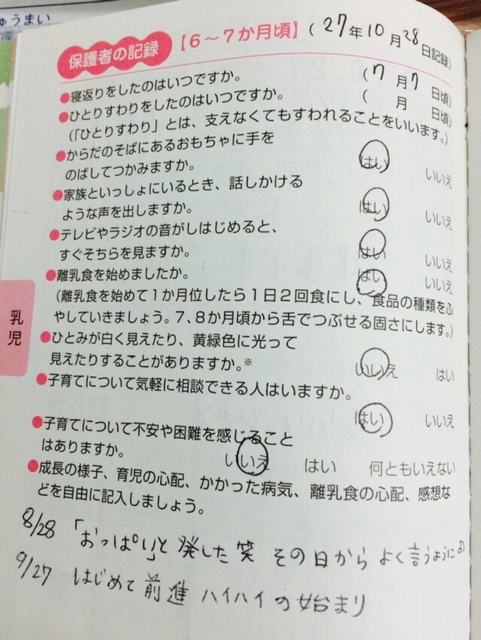 ゅうまい
保護者の記録 【6〜7か月頃】 (27年10月28日記録)
●寝返りをしたのはいつですか。 (7月7日頃)
●ひとりすわりをしたのはいつですか。 (　月　日頃)
(「ひとりすわり」とは、支えなくてもすわれることをいいます。)
●からだのそばにあるおもちゃに手を
のばしてつかみますか。 はい いいえ
●家族といっしょにいるとき、話しかける
ような声を出しますか。 はい いいえ
●テレビやラジオの音がしはじめると、
すぐそちらを見ますか。 はい いいえ
●離乳食を始めましたか。 はい いいえ
(離乳食を始めて1か月位したら1日2回食にし、食品の種類をふ
やしていきましょう。7、8か月頃から舌でつぶせる固さにします。)
●ひとみが白く見えたり、黄緑色に光って
見えたりすることがありますか。※ いいえ はい
●子育てについて気軽に相談できる人はいますか。
はい いいえ
●子育てについて不安や困難を感じること
はありますか。 いいえ はい 何ともいえない
●成長の様子、育児の心配、かかった病気、離乳食の心配、感想な
どを自由に記入しましょう。
8/28 「おっぱい」と発した笑 その日からよく言うように
9/27 はじめて前進 ハイハイの始まり
乳児